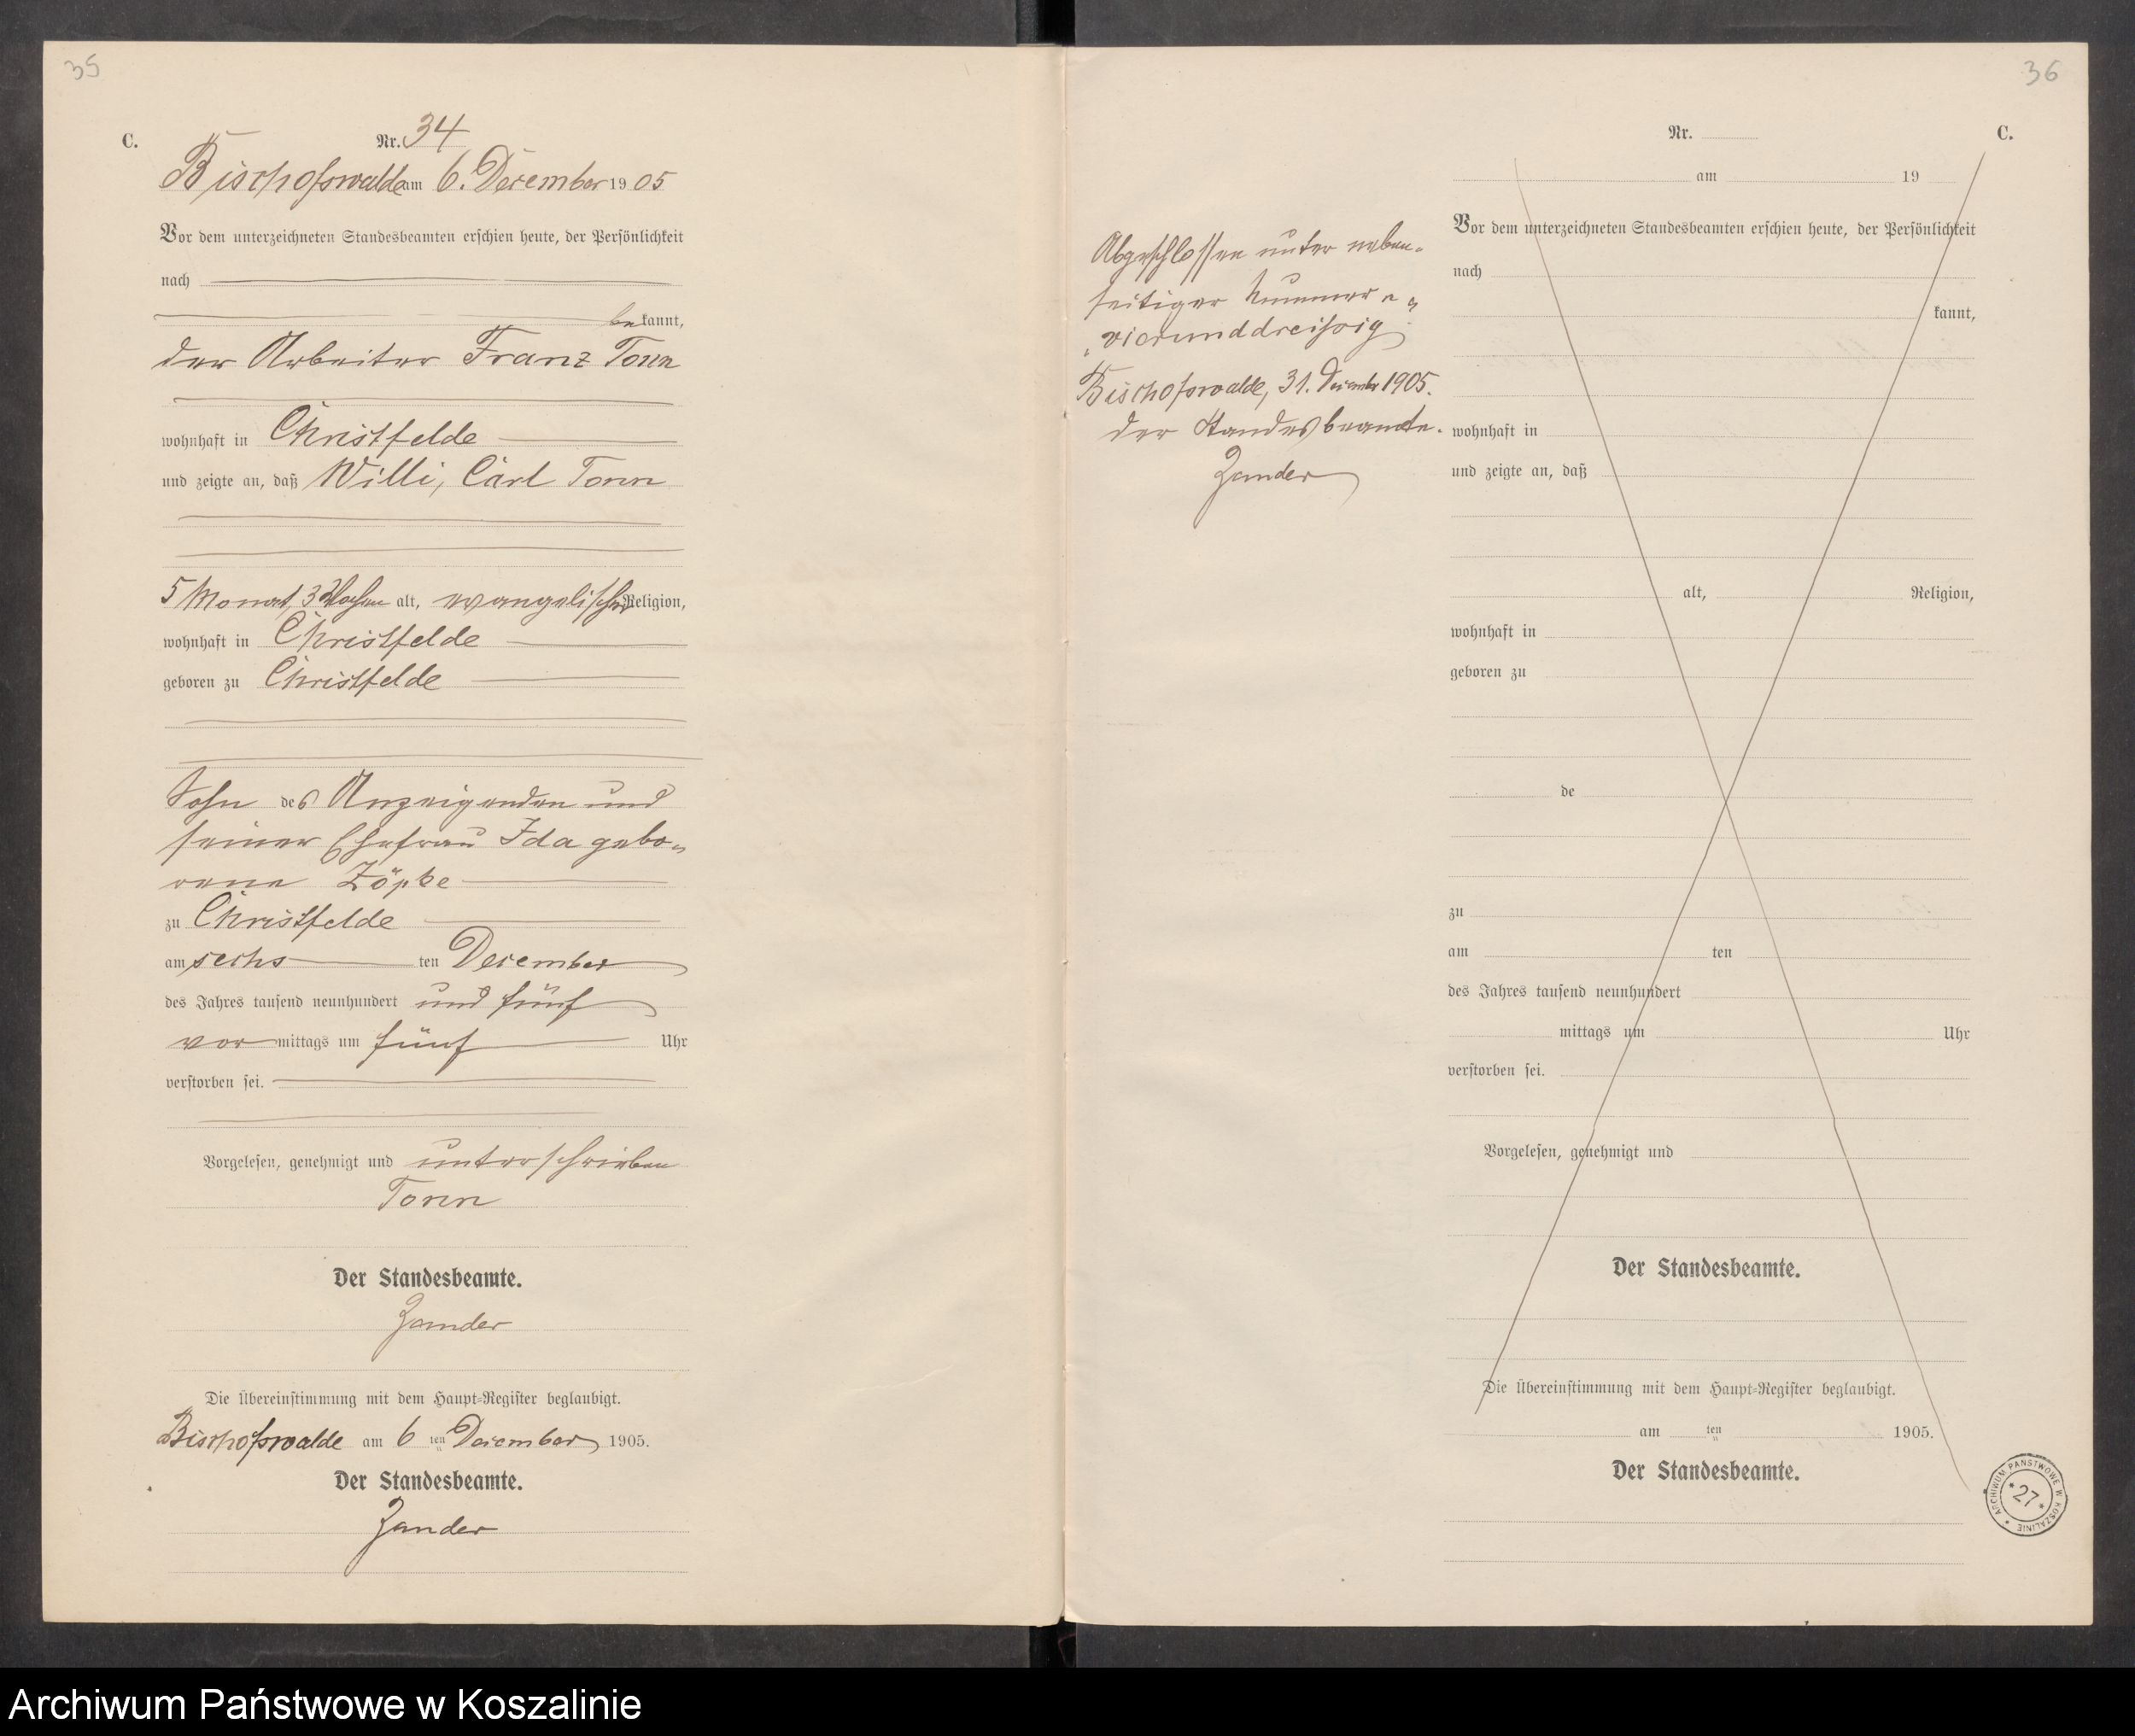 35
C.
Nr. 34
Bischofswalde am 6. Dezember 1905
Vor dem unterzeichneten Standesbeamten erschien heute, der Persönlichkeit
nach
bekannt,
der Arbeiter Franz Tonn
wohnhaft in Christfelde
und zeigte an, daß Willi, Carl Tonn
5 Monat, 3 Wochen alt, evangelischer Religion,
wohnhaft in Christfelde
geboren zu Christfelde
Sohn des Anzeigenden und
seiner Ehefrau Ida gebo-
rene Zöpke
zu Christfelde
am sechsten Dezember
des Jahres tausend neunhundert und fünf
vormittags um fünf Uhr
verstorben sei.
Vorgelesen, genehmigt und unterschrieben
Tonn
Der Standesbeamte.
Zander
Die Übereinstimmung mit dem Haupt-Register beglaubigt.
Bischofswalde am 6 ten Dezember 1905.
Der Standesbeamte.
Zander
36
Abgeschlossen unter neben-
seitiger Nummer
„vierunddreißig“
Bischofswalde, 31. Dezember 1905.
der Standesbeamte.
Zander
Nr.
C.
am 19
Vor dem unterzeichneten Standesbeamten erschien heute, der Persönlichkeit
nach
kannt,
wohnhaft in
und zeigte an, daß
alt, Religion,
wohnhaft in
geboren zu
de
zu
am ten
des Jahres tausend neunhundert
mittags um Uhr
verstorben sei.
Vorgelesen, genehmigt und
Der Standesbeamte.
Die Übereinstimmung mit dem Haupt-Register beglaubigt.
am ten 1905.
Der Standesbeamte.
ARCHIWUM PAŃSTWOWE W KOSZALINIE
* 27 *
Archiwum Państwowe w Koszalinie